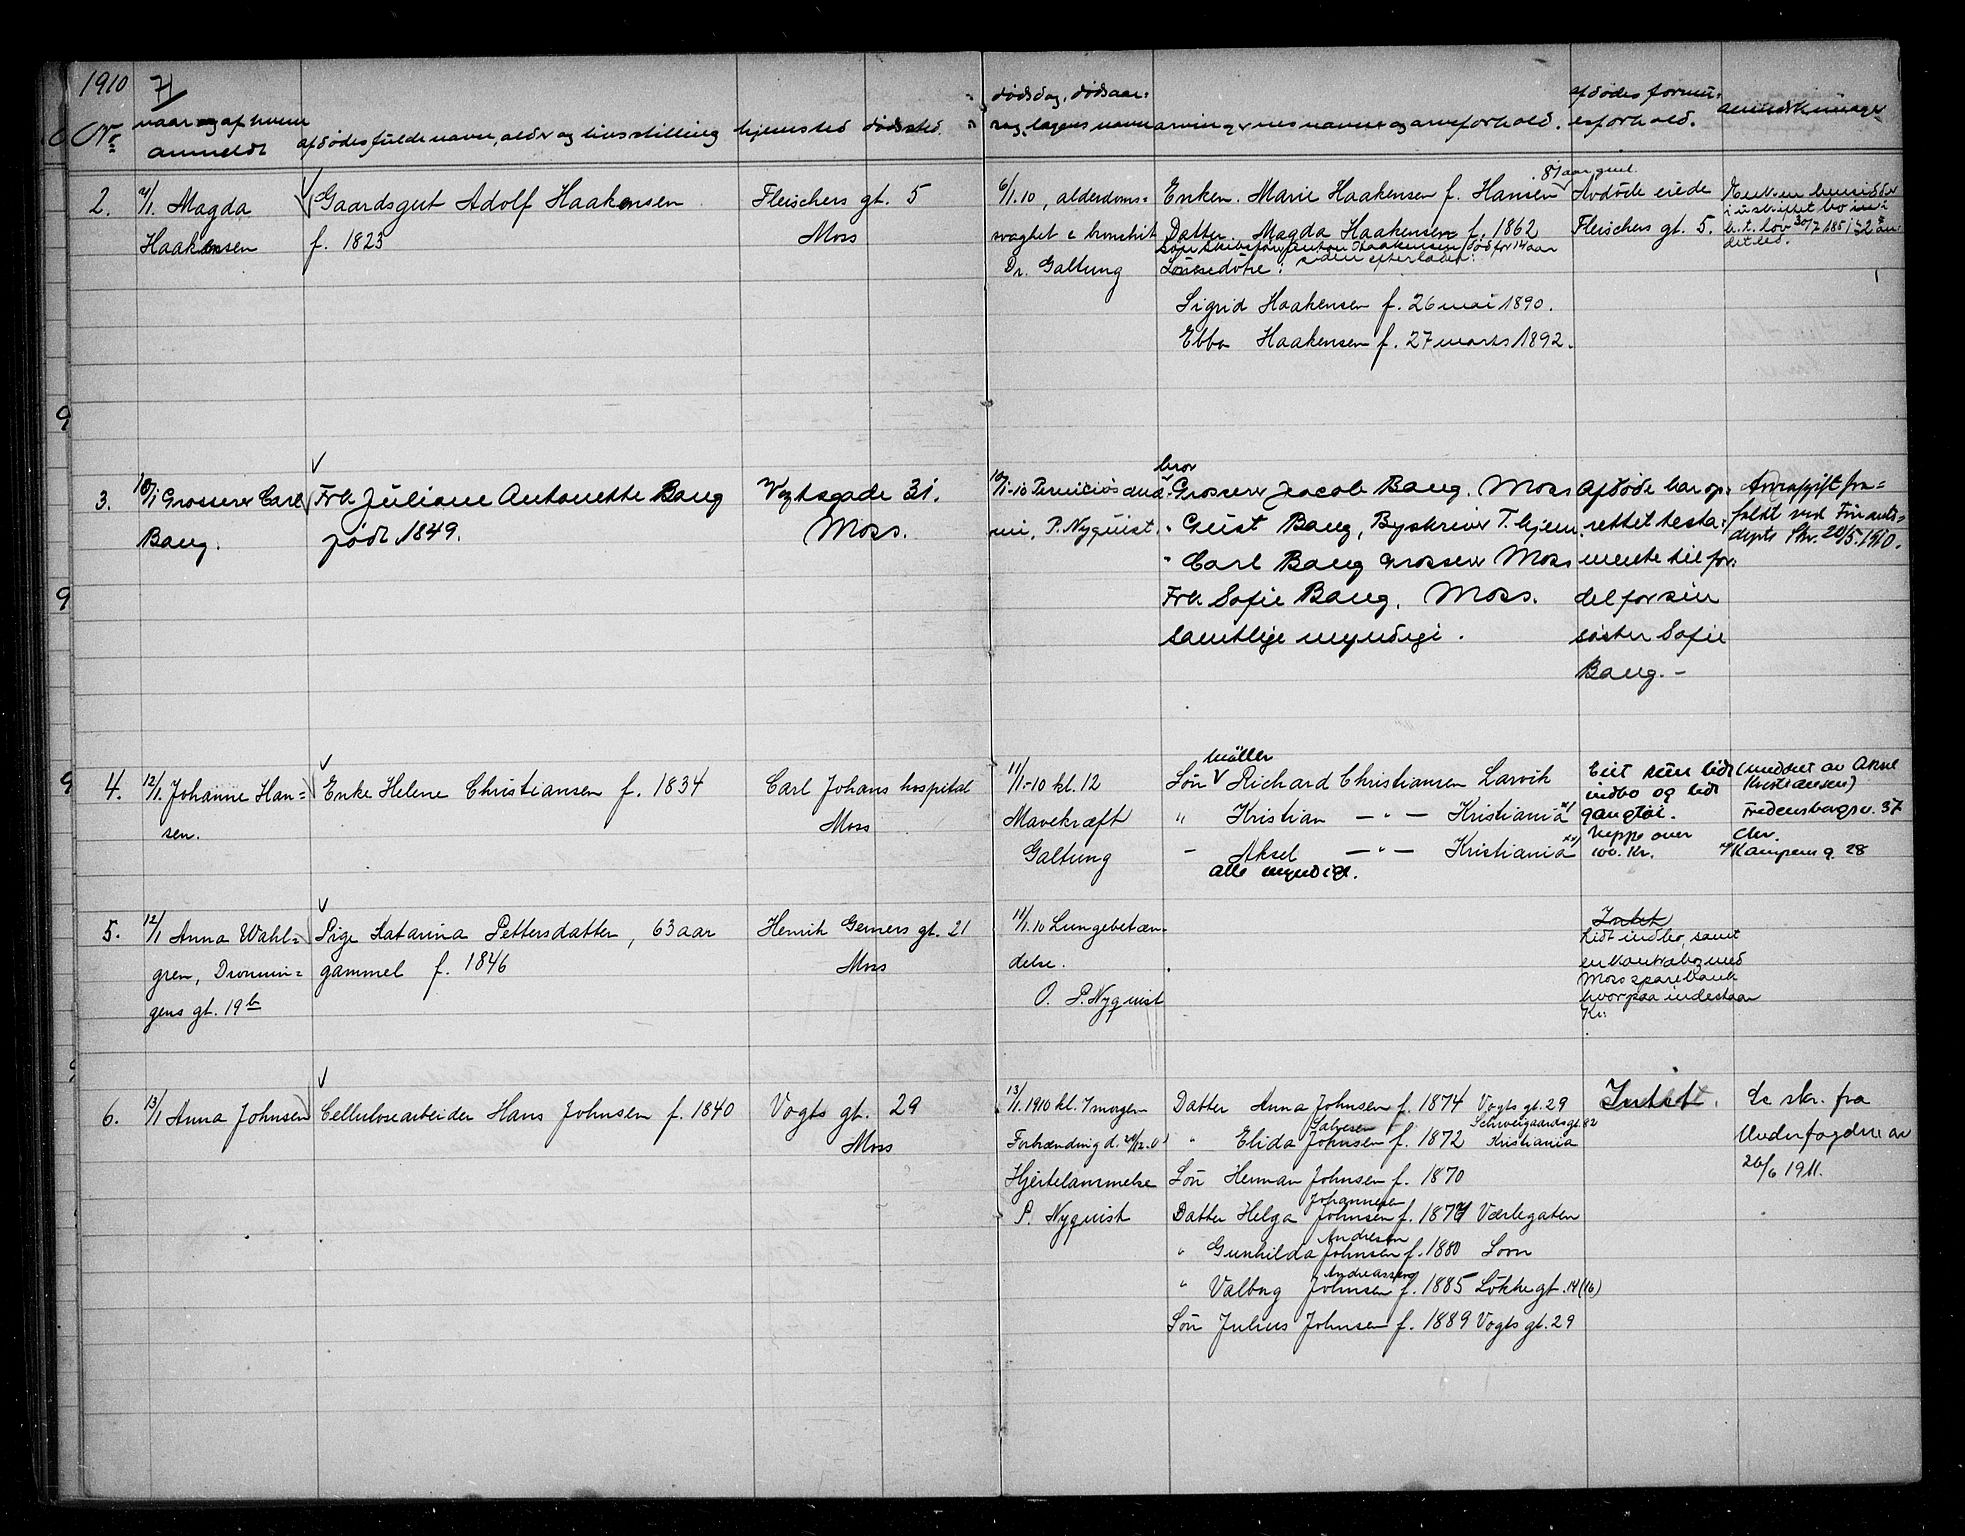 1910 7/1
No
naar og af hvem
anmeldt
afdødes fulde navn, alder og livsstilling
hjemsted
dødsted
dødsdag, dødsaar-
sag, lægens navn
arvingernes navne og arveforhold.
afdødes formu-
esforhold.
anmerkninger
2.
7/1 Magda
Haakensen
Gaardsgut Adolf Haakensen
f. 1823
Fleischers gt. 5
Moss
6/1.10, alderdoms-
svaghet & bronchit
Dr. Galtung
81 aar gml.
Enken Marie Haakensen f. Hansen
Datter Magda Haakensen f. 1862
Søn Skibsfører Anton Haakensen død for 14 aar
siden efterlader:
Sønnedøtre:
Sigrid Haakensen f. 26 mai 1890.
Ebba Haakensen f. 27 marts 1892.
Avdøde eiede
Fleischers gt. 5.
Enken hensidder
i uskiftet bo
h. t. lov 30/7 1851
3.
10/1 Grosserer Carl
Baug.
Frk Juliane Antonette Baug
født 1849.
Vogtsgade 31.
Moss.
10/1-10 Perniciøs anæ-
mi, P. Nyquist.
bror
Grosserer Jacob Baug. Moss
" Gust Baug, Byskriver T.hjem.
" Carl Baug Grosserer Moss
Frk Sofie Baug. Moss.
samtlige myndige.
Afdøde har op-
rettet testa-
mente til for-
del for sin
søster Sofie
Baug.-
Arveafgift fra-
faldt ved Finants-
depts Skr. 20/5.1910.
4.
12/1. Johanne Han-
sen.
Enke Helene Christiansen f. 1834
Carl Johans hospital
Moss
11/1-10 kl. 12
Mavekræft
Galtung
Møller
Søn Richard Christiansen Larvik
" Kristian — " — Kristiania x)
- Aksel — " — Kristiania xx)
alle myndige.
Eiet kun lidt
indbo og lidt
gangtøi.
Neppe over
100. Kr.
(meddelt av Aksel
Kristiansen)
Fredensborgsv. 37
Chr.
Kampens g. 28
5.
12/1 Anna Wahl-
gren, Dronnin-
gens gt. 19 b
Pige Katarina Pettersdatter, 63 aar
gammel f. 1846
Henrik Gerners gt. 21
Moss
11/1.10 Lungebetæn-
delse.
O. P. Nyquist
Intet
Lidt indbo, samt
en kontrabog med
Moss sparebank
hvorpaa indestaar
Kr.
6.
13/1 Anna Johnsen
Cellulosearbeider Hans Johnsen f. 1840
Vogts gt. 29
Moss
13/1.1910 kl. 7 morgen
Hjertelammelse
P. Nyquist
Datter Anna Johnsen f. 1874 Vogts gt. 29
Salvesen Schweigaardsgt. 82
" Elida Johnsen f. 1872 Kristiania
Søn Herman Johnsen f. 1870
Johannesen
Datter Helga Johnsen f. 1877 Værlegaten
Andresen
" Gunhilda Johnsen f. 1880 Son
Andreassen
" Valborg Johnsen f. 1885 Løkkegt. 14 (16)
Søn Julius Johnsen f. 1889 Vogts gt. 29
Intet.
Se skr. fra
Underfogden av
26/6 1911.